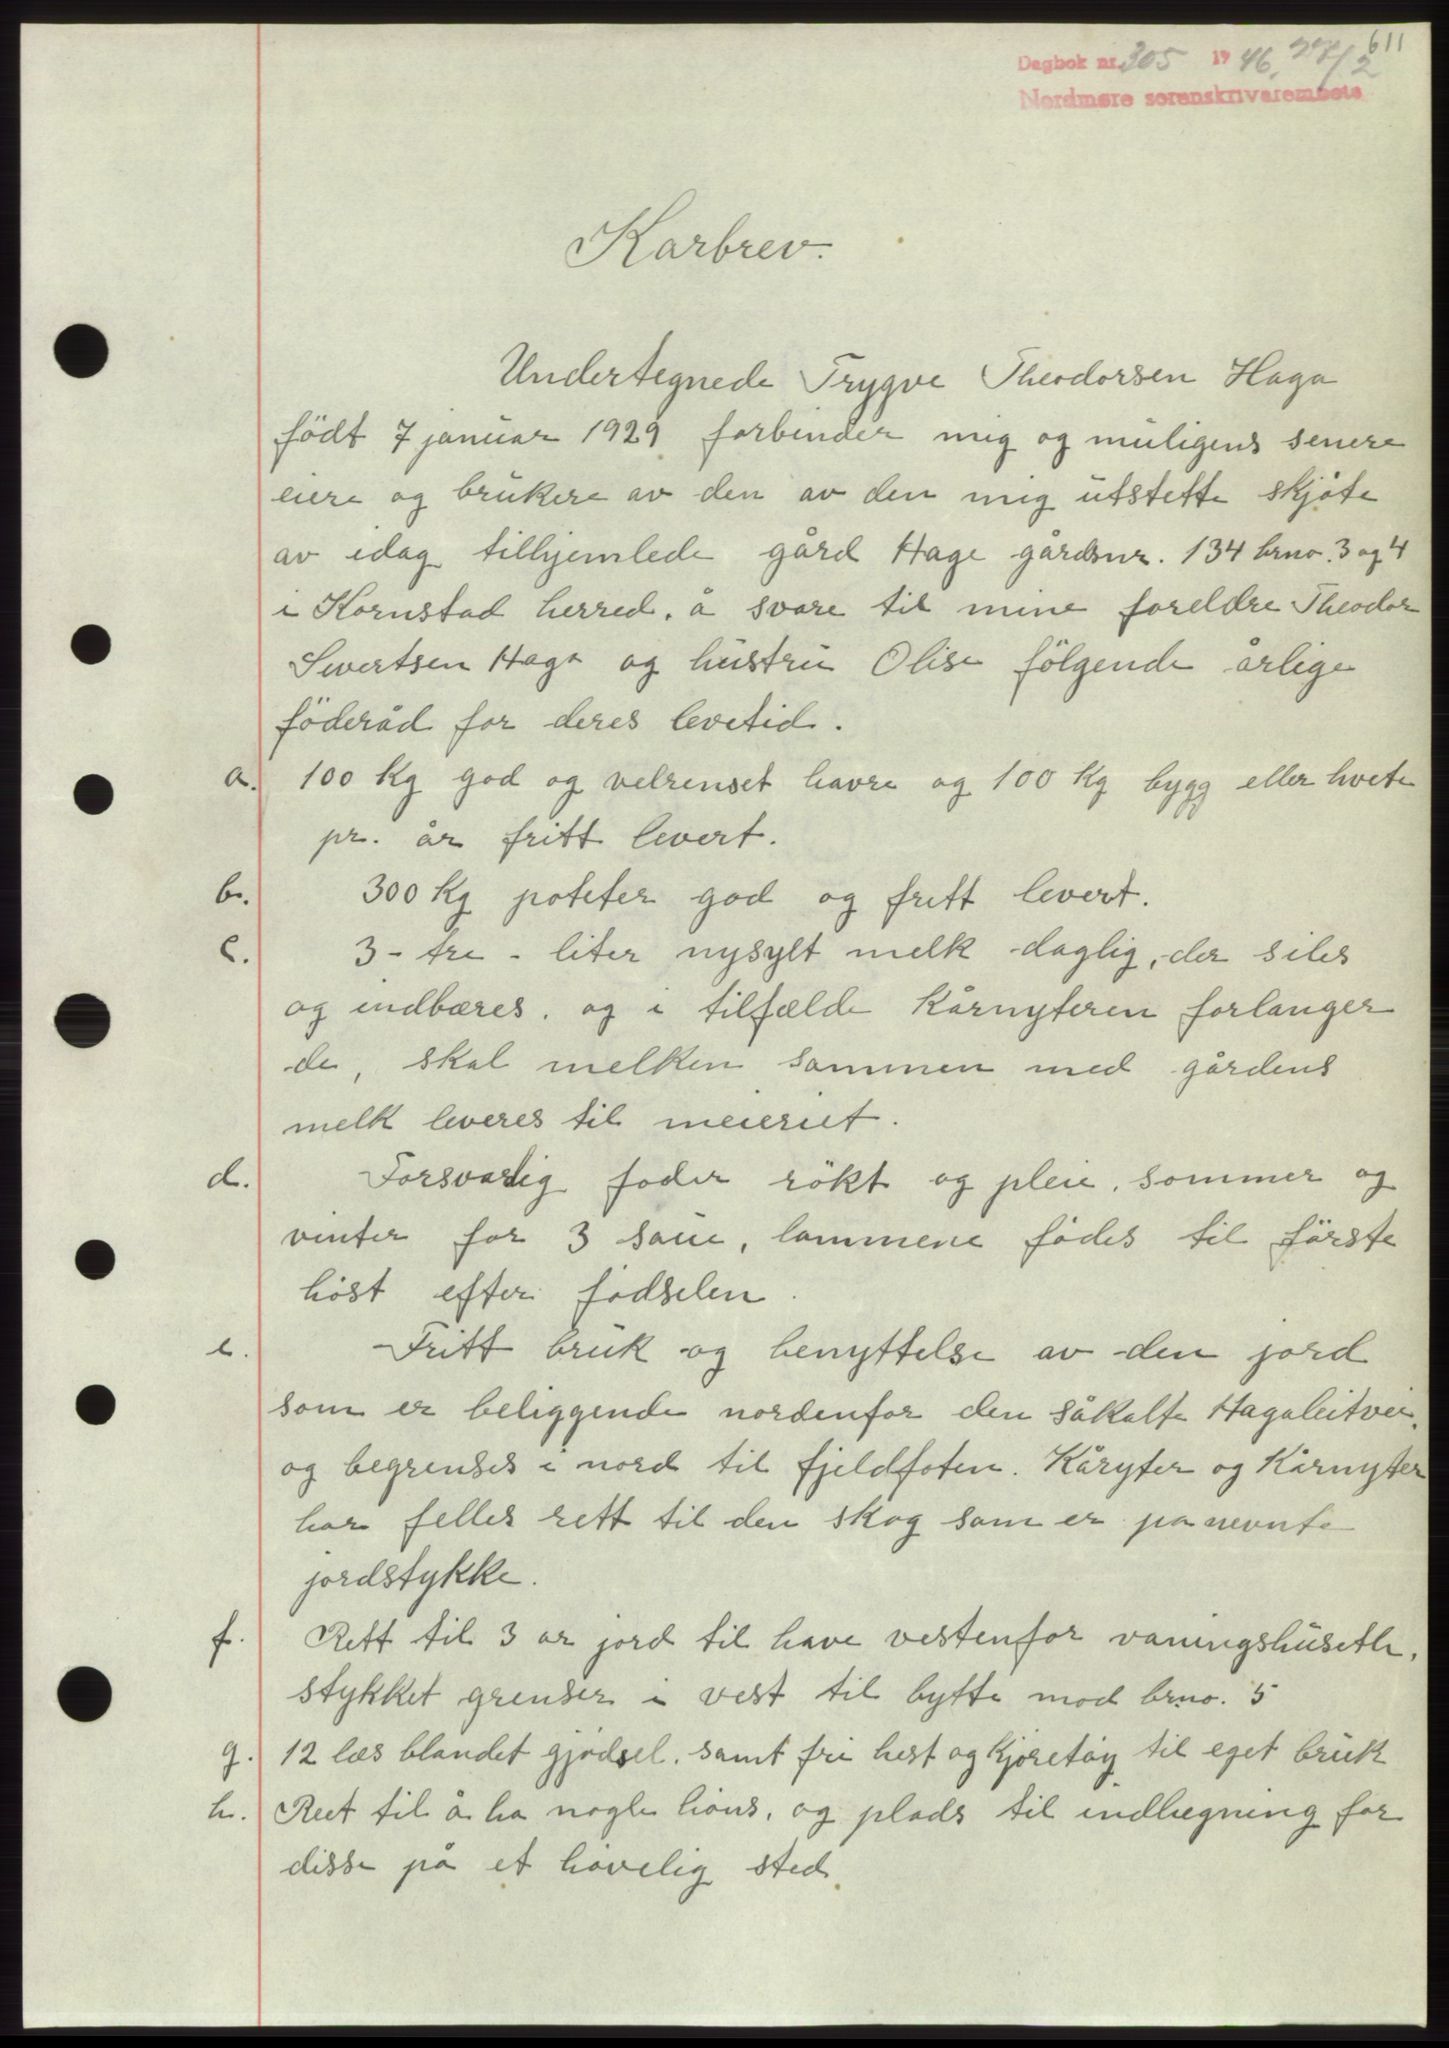 611
Dagbok nr. 305 1946, 27/2
Nordmøre sorenskrivarembete
Karbrev.
Undertegnede Trygve Theodorsen Haga
födt 7 januar 1929 forbinder mig og muligens senere
eiere og brukere av den av den mig utstette skjöte
av idag tilhjemlede gård Hage gårdsnr. 134 brno. 3 og 4
i Kornstad herred. å svare til mine foreldre Theodor
Sivertsen Haga og hustru Olise fölgende årlige
föderåd for deres levetid.
a. 100 Kg god og velrenset havre og 100 Kg bygg eller hvete
pr. år fritt levert.
b. 300 Kg poteter god og fritt levert.
c. 3 - tre - liter nysylt melk daglig, der siles
og indbæres. og i tilfælde Kårnyteren forlanger
de, skal melken sammen med gårdens
melk leveres til meieriet.
d. Forsvarlig foder rökt og pleie, sommer og
vinter for 3 saue, lammene födes til förste
höst efter födselen.
e. Fritt bruk og benyttelse av den jord
som er beliggende nordenfor den såkalte Hagaleitvei,
og begrenses i nord til fjeldfoten. Kåryter og Kårnyter
har felles rett til den skog som er pa nevnte
jordstykke.
f. Rett til 3 ar jord til have vestenfor vaningshusette,
stykket grenser i vest til bytte mod brno. 5
g. 12 læs blandet gjødsel, samt fri hest og Kjøretøy til eget bruk
h. Reet til å ha nogle höns, og plads til indlægning for
disse på et høvelig sted.